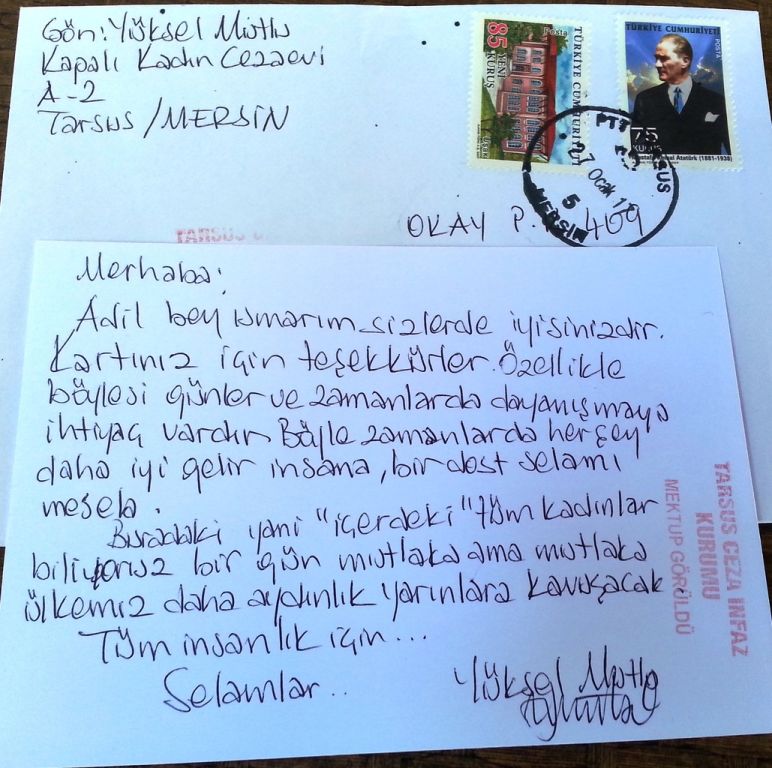 Gön: Yüksel Mutlu
Kapalı Kadın Cezaevi
A-2
Tarsus/MERSİN
85
YENİ
KURUŞ
Posta
TÜRKİYE CUMHURİYETİ
TÜRKİYE CUMHURİYETİ
POSTA
75
KURUŞ
Mustafa Kemal Atatürk (1881-1938)
PTT
TARSUS
17 Ocak 17
5
MERSİN
OKAY P. 409
TARSUS
Merhaba;
Adil bey umarım sizlerde iyisinizdir.
Kartınız için teşekkürler. Özellikle
böylesi günler ve zamanlarda dayanışmaya
ihtiyaç vardır. Böyle zamanlarda herşey
daha iyi gelir insana, bir dost selamı
mesela.
Buradaki yani "içerdeki" tüm kadınlar
biliyoruz bir gün mutlaka ama mutlaka
ülkemiz daha aydınlık yarınlara kavuşacak.
Tüm insanlık için...
Selamlar..
Yüksel Mutlu
TARSUS CEZA İNFAZ
KURUMU
MEKTUP GÖRÜLDÜ